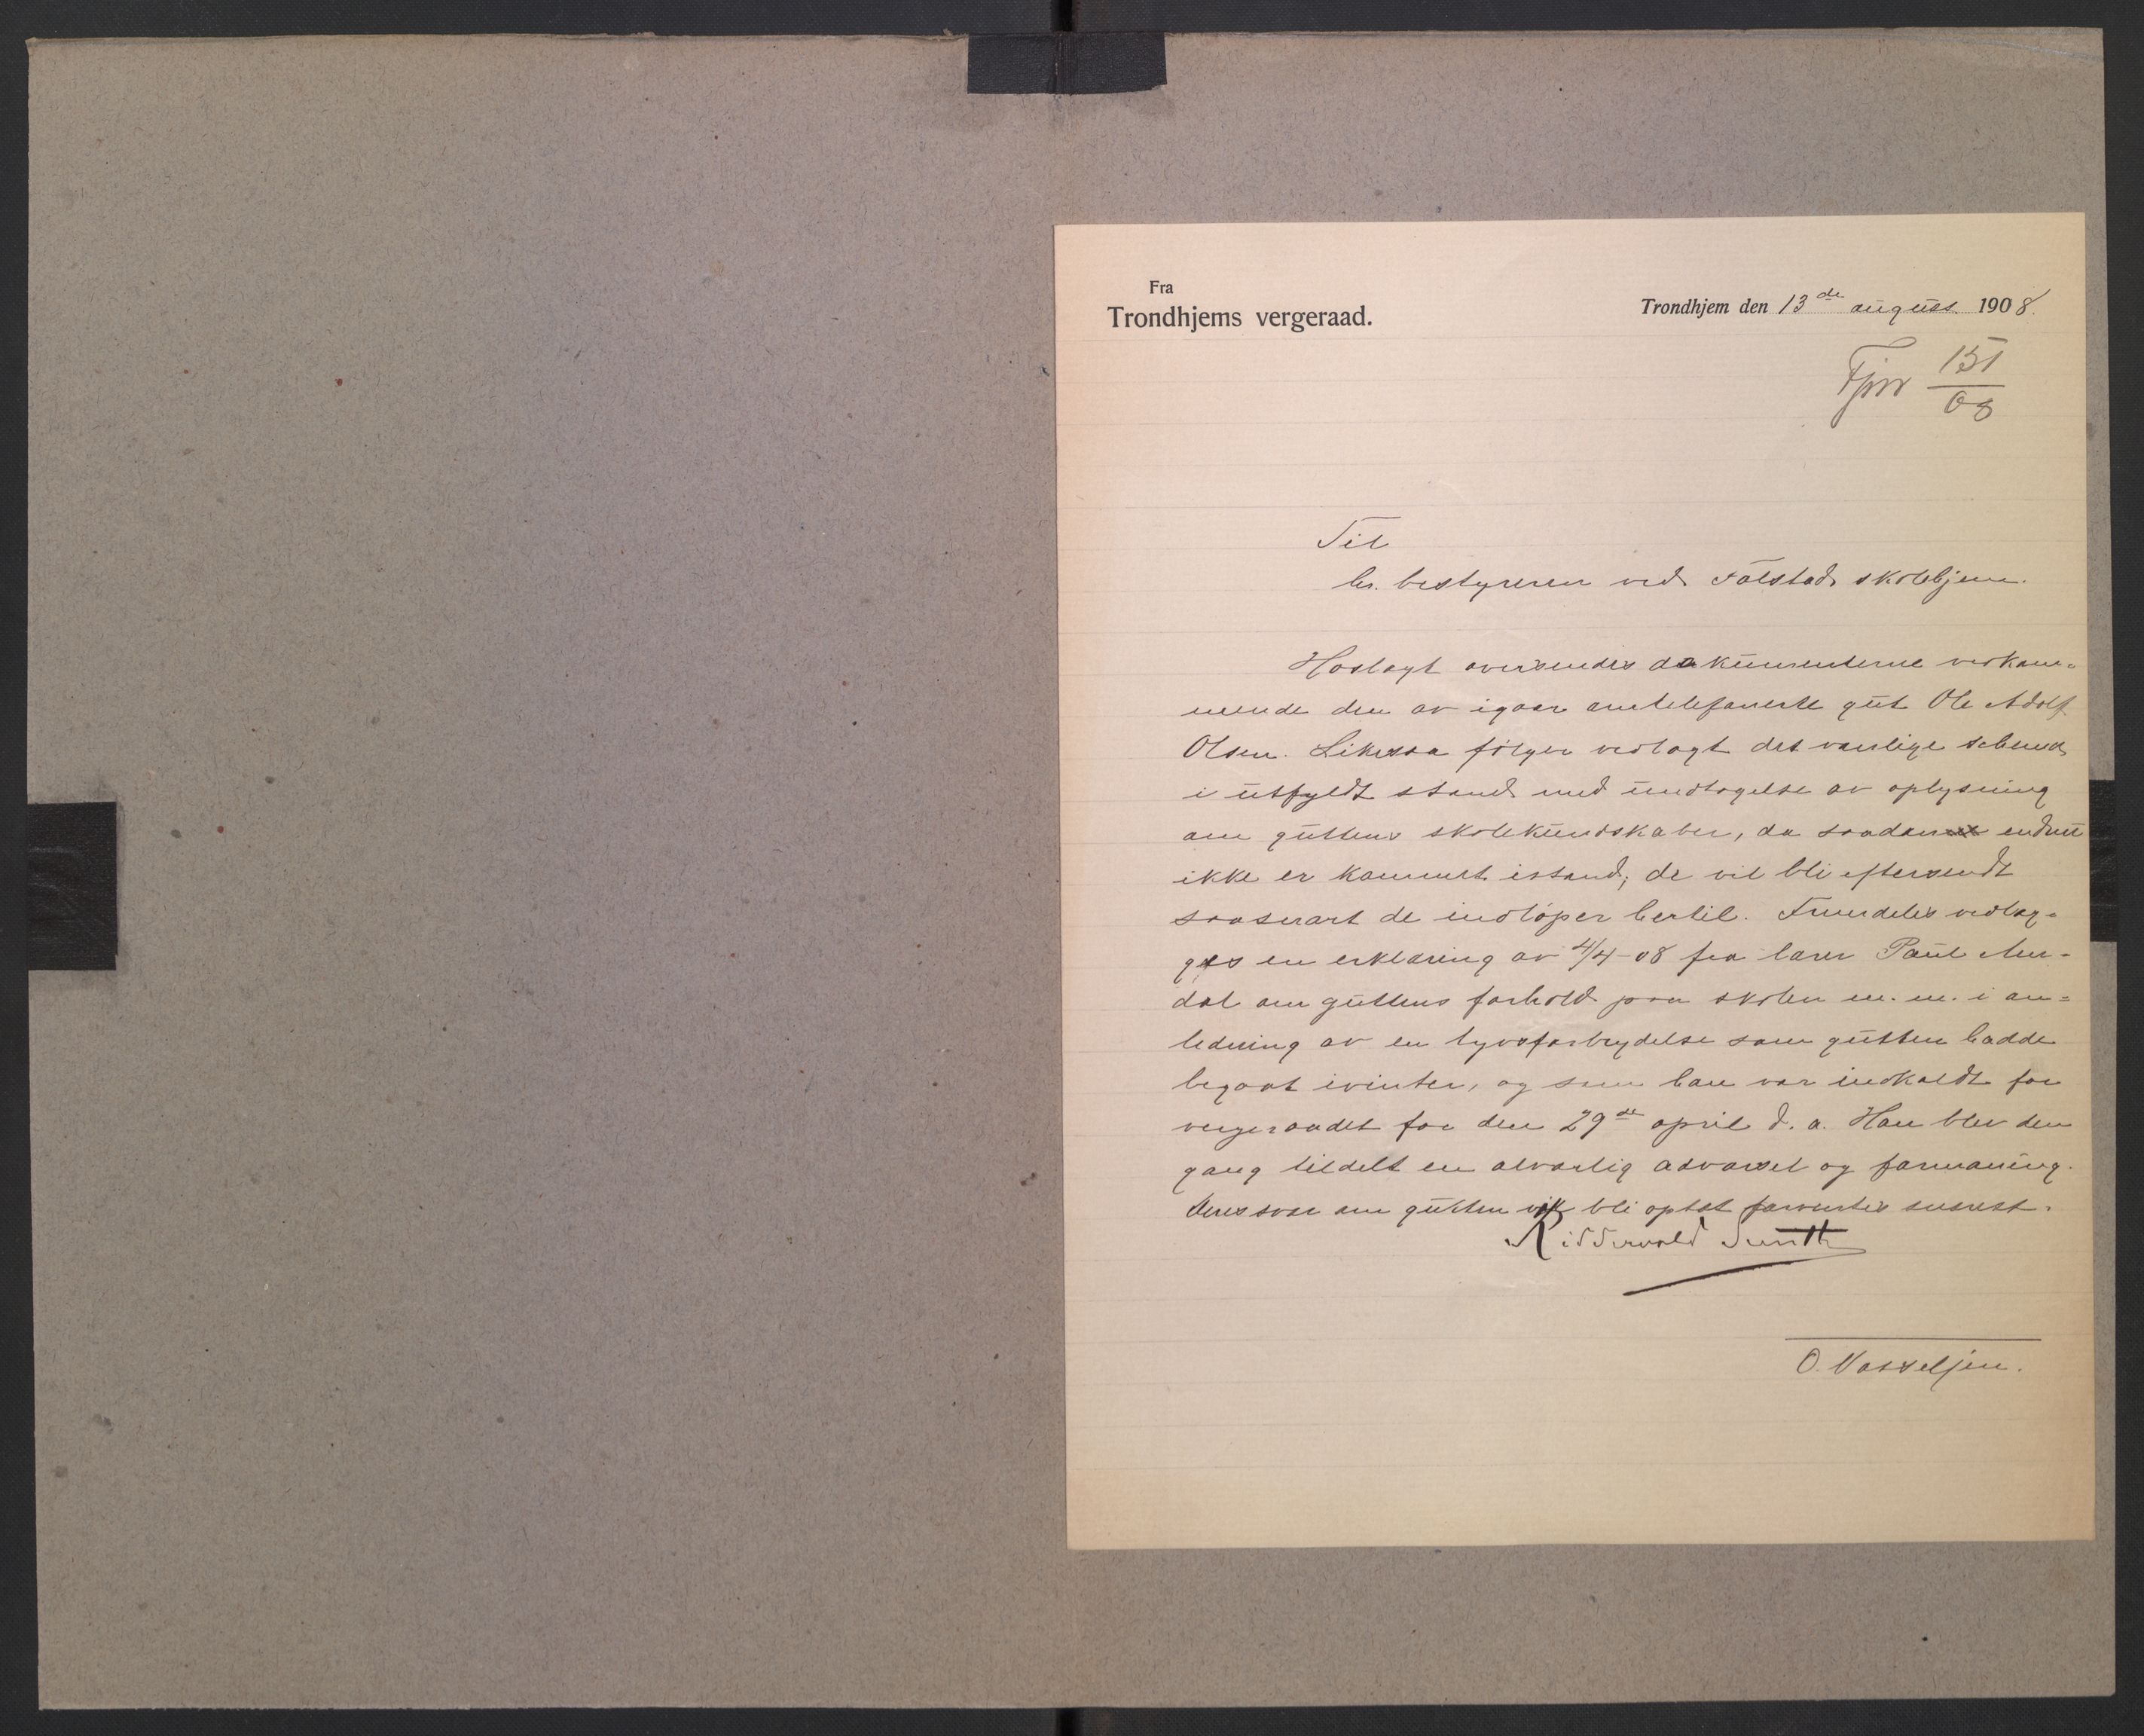 Fra
Trondhjems vergeraad.
Trondhjem den 13de august 1908
Fjnr 151/08
Til
hr. bestyreren ved Falstad skolehjem.
Hoslagt oversendes dokumenterne vedkom-
mende den av igaar omtelefonerte gut Ole Adolf
Olsen. Likesaa følger vedlagt det vanlige schema
i utfyldt stand med undtagelse av oplysning
om guttens skolekundskaber, da saadan endnu
ikke er kommet istand; de vil bli eftersendt
saasnart de indløper hertil. Fremdeles vedlæg-
ges en erklæring av 4/4-08 fra lærer Paul Mur-
dal om guttens forhold paa skolen m. m. i an-
ledning av en tyvsforbrydelse som gutten hadde
begaat ivinter, og som han var indkaldt for
vergeraadet for den 29de april d. a. Han blev den
gang tildelt en alvorlig advarsel og formaning.
Deres svar om gutten vil bli optat forventes snarest.
Ridderwold Smith
O. Vasseljen.